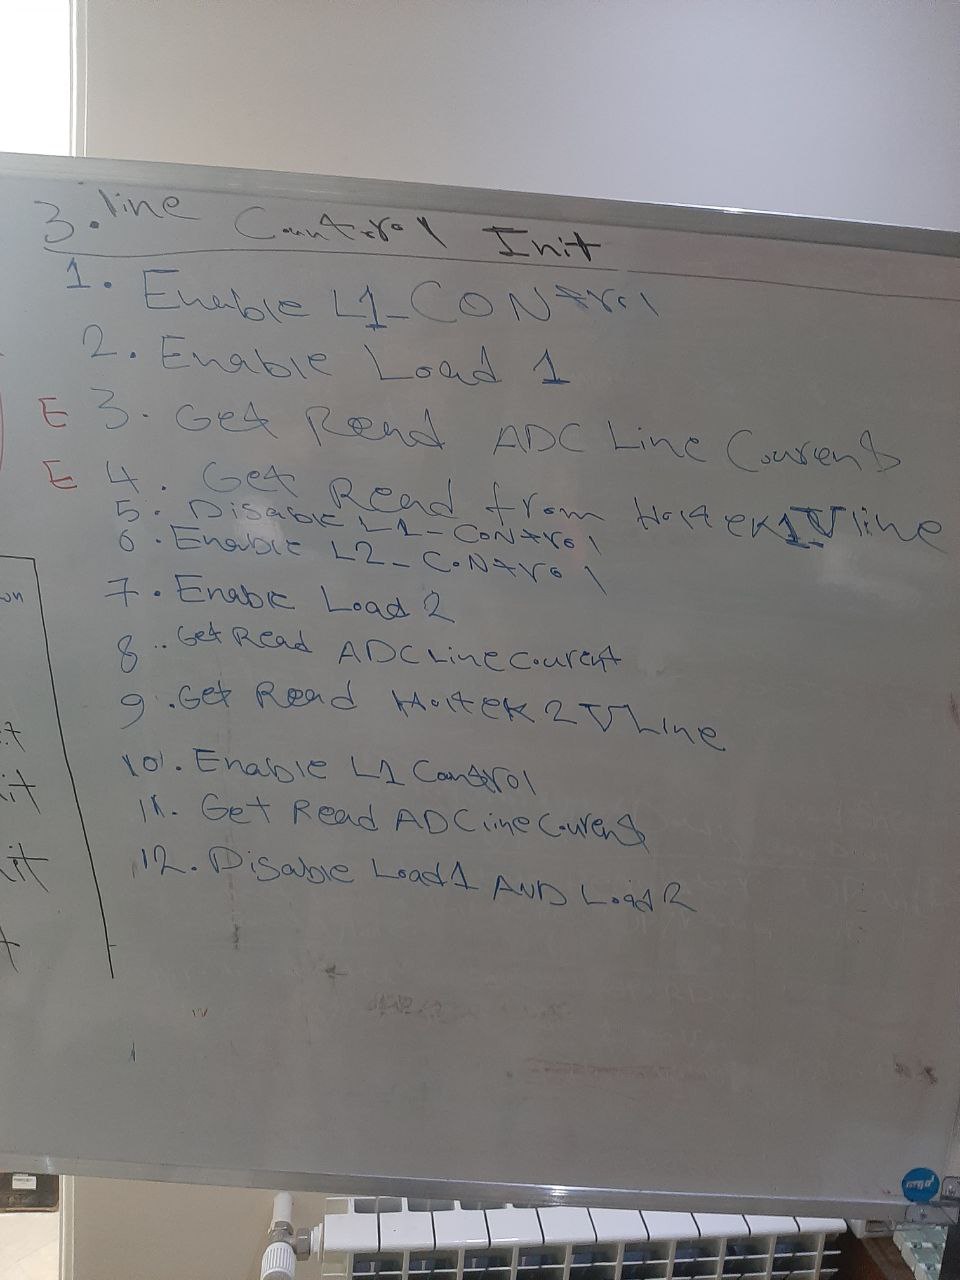 3. line Control Init
1. Enable L1_CONtrol
2. Enable Load 1
E 3. Get Read ADC Line Courent
E 4. Get Read from Holtek1 Vline
5. Disable L1_CONtrol
6. Enable L2_CONtrol
7. Enable Load 2
8.. Get Read ADC Line Courent
9. Get Read Holtek 2 VLine
10. Enable L1 Control
11. Get Read ADC line Courent
12. Disable Load1 AND Load 2
on
it
it